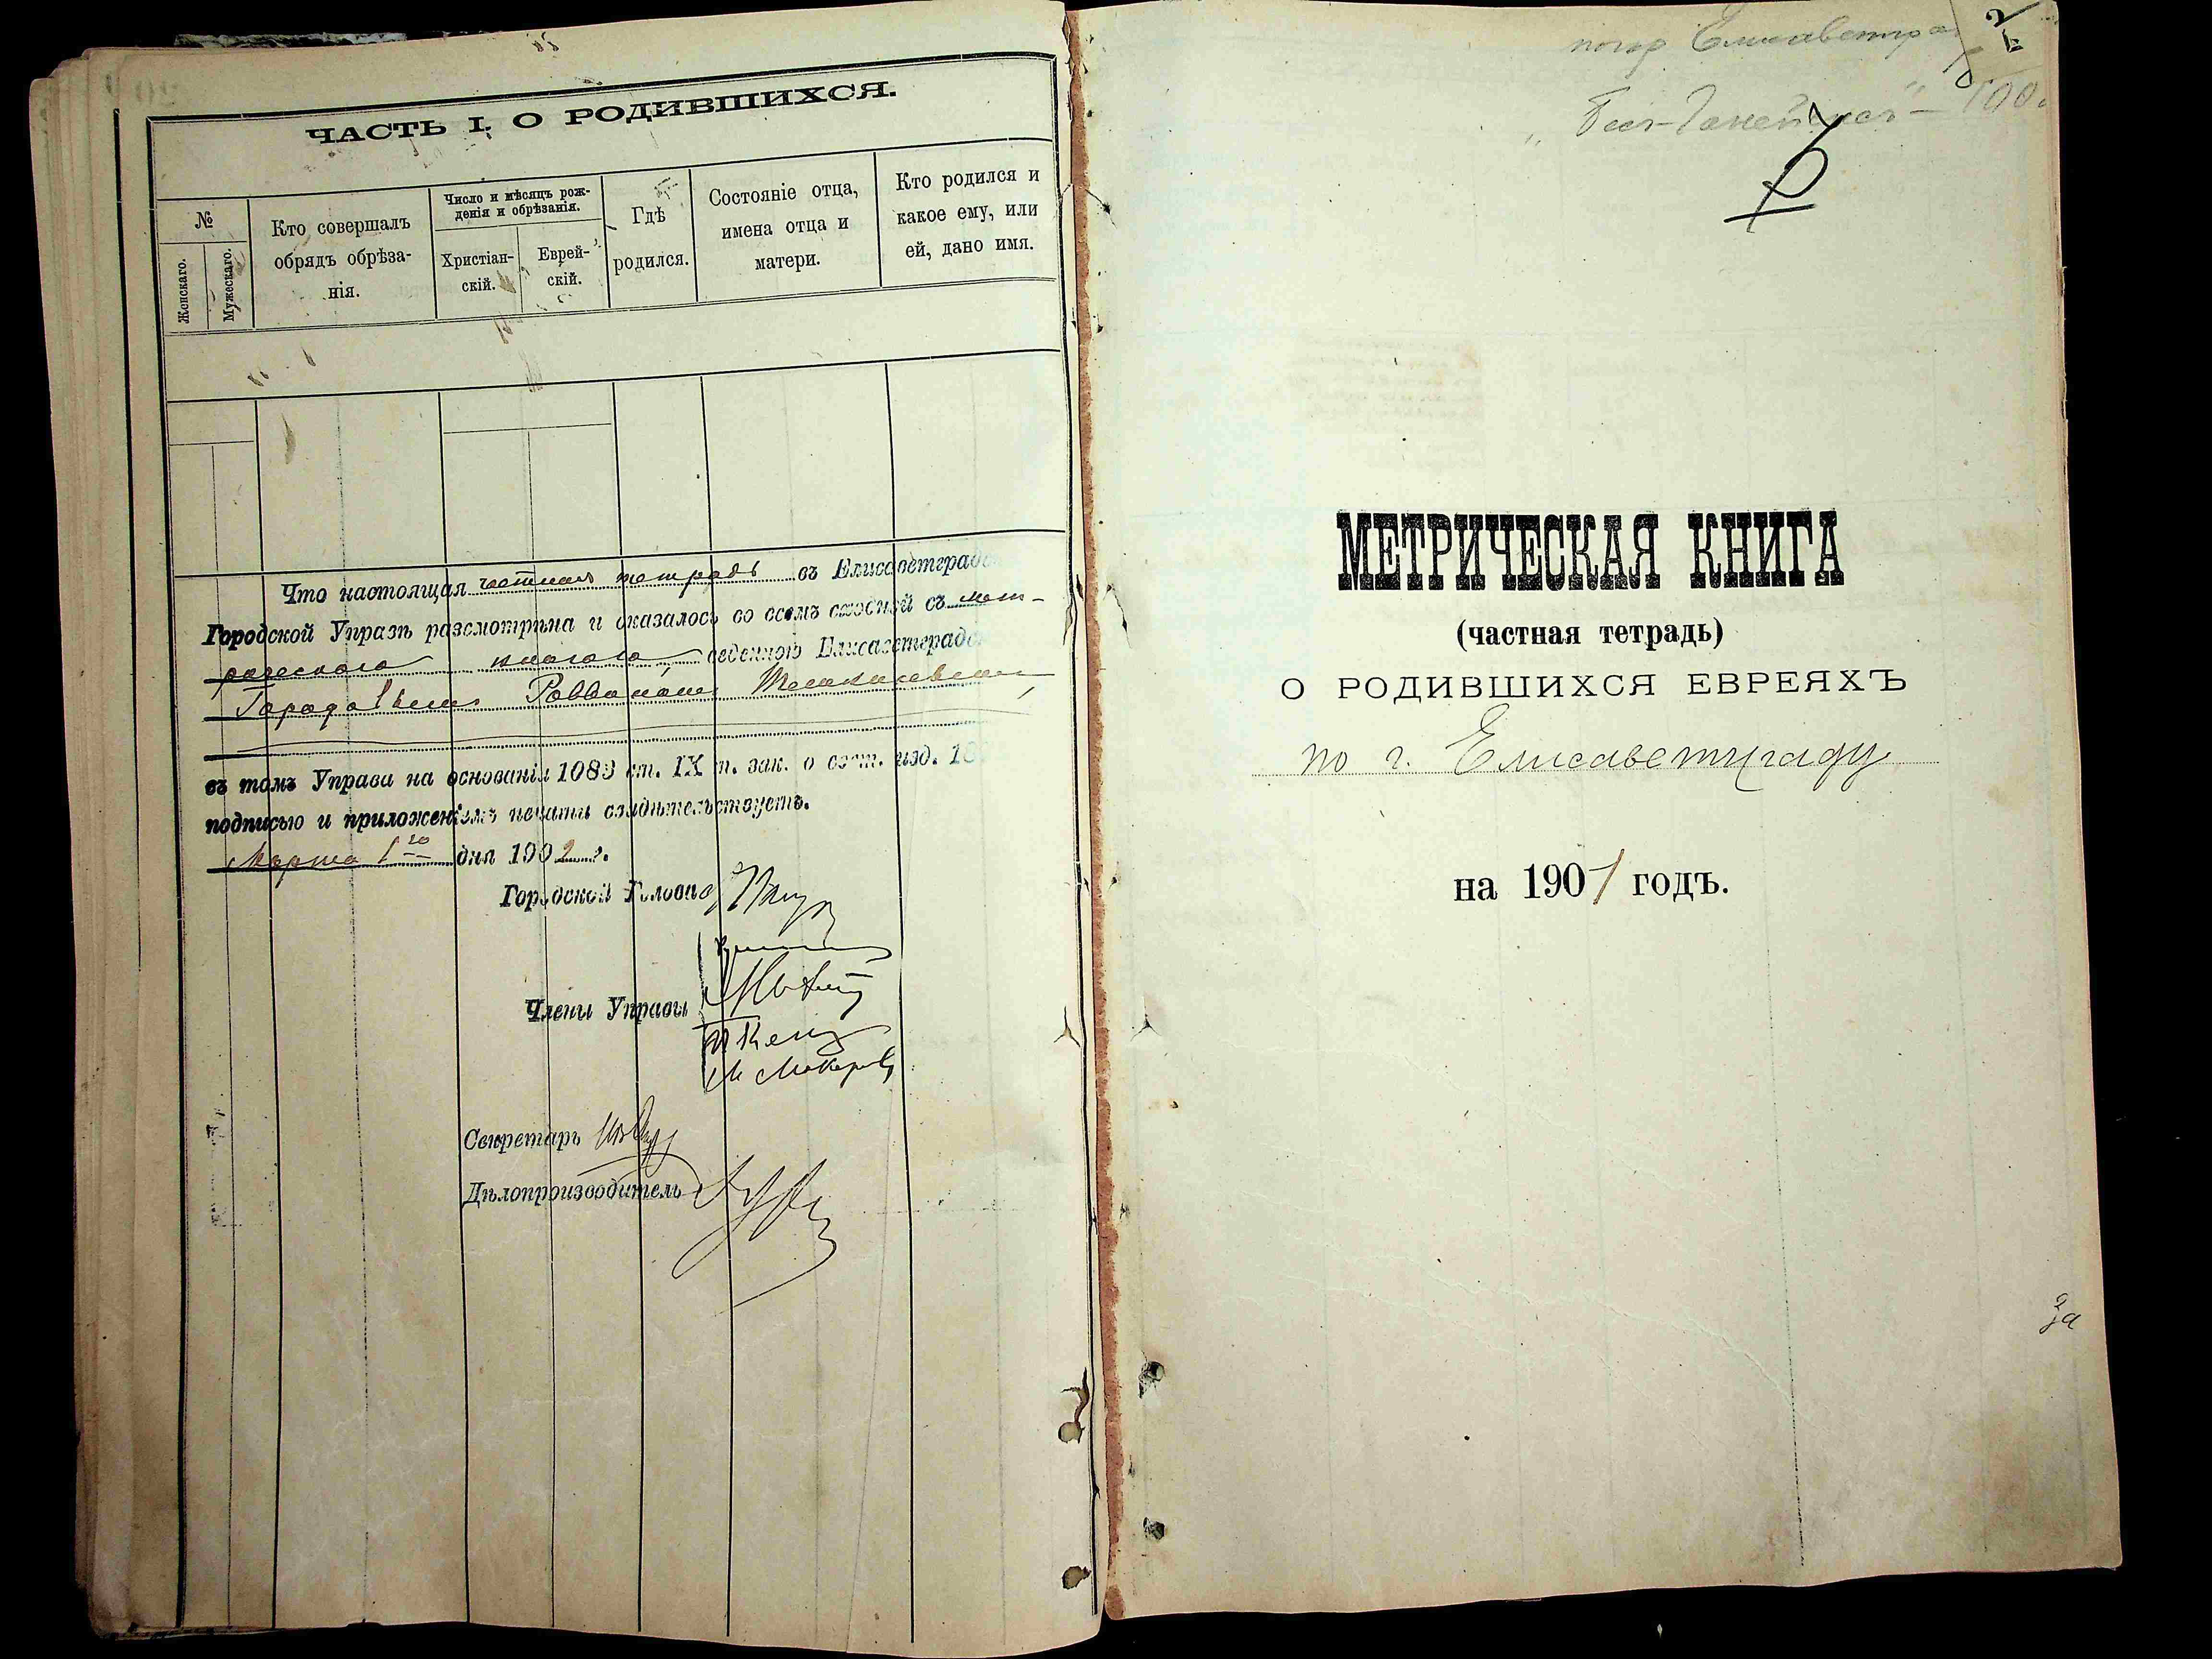 ЧАСТЬ I, О РОДИВШИХСЯ.
№
Женскаго.
Мужескаго.
Кто совершалъ
обрядъ обрѣза-
нія.
Число и мѣсяцъ рож-
денія и обрѣзанія.
Христіан-
скій.
Еврей-
скій.
Гдѣ
родился.
Состояніе отца,
имена отца и
матери.
Кто родился и
какое ему, или
ей, дано имя.
Что настоящая частная тетрадь въ Елисаветград
Городской Управѣ разсмотрѣна и оказалось во всемъ сходной съ мет-
рическою книгою веденною Елисаветград
Городовымъ Раввиномъ
въ томъ Управа на основаніи 1083 ст. IX т. зак. о сост. изд. 1
подписью и приложеніемъ печати свидѣтельствуетъ.
Марта 1го дня 1902 г.
Городской Голова
Члены Управы
М Макаров
Секретарь
Дѣлопроизводитель
гор Елисаветгра
100
МЕТРИЧЕСКАЯ КНИГА
(частная тетрадь)
О РОДИВШИХСЯ ЕВРЕЯХЪ
по г. Елисаветграду
на 1901 годъ.